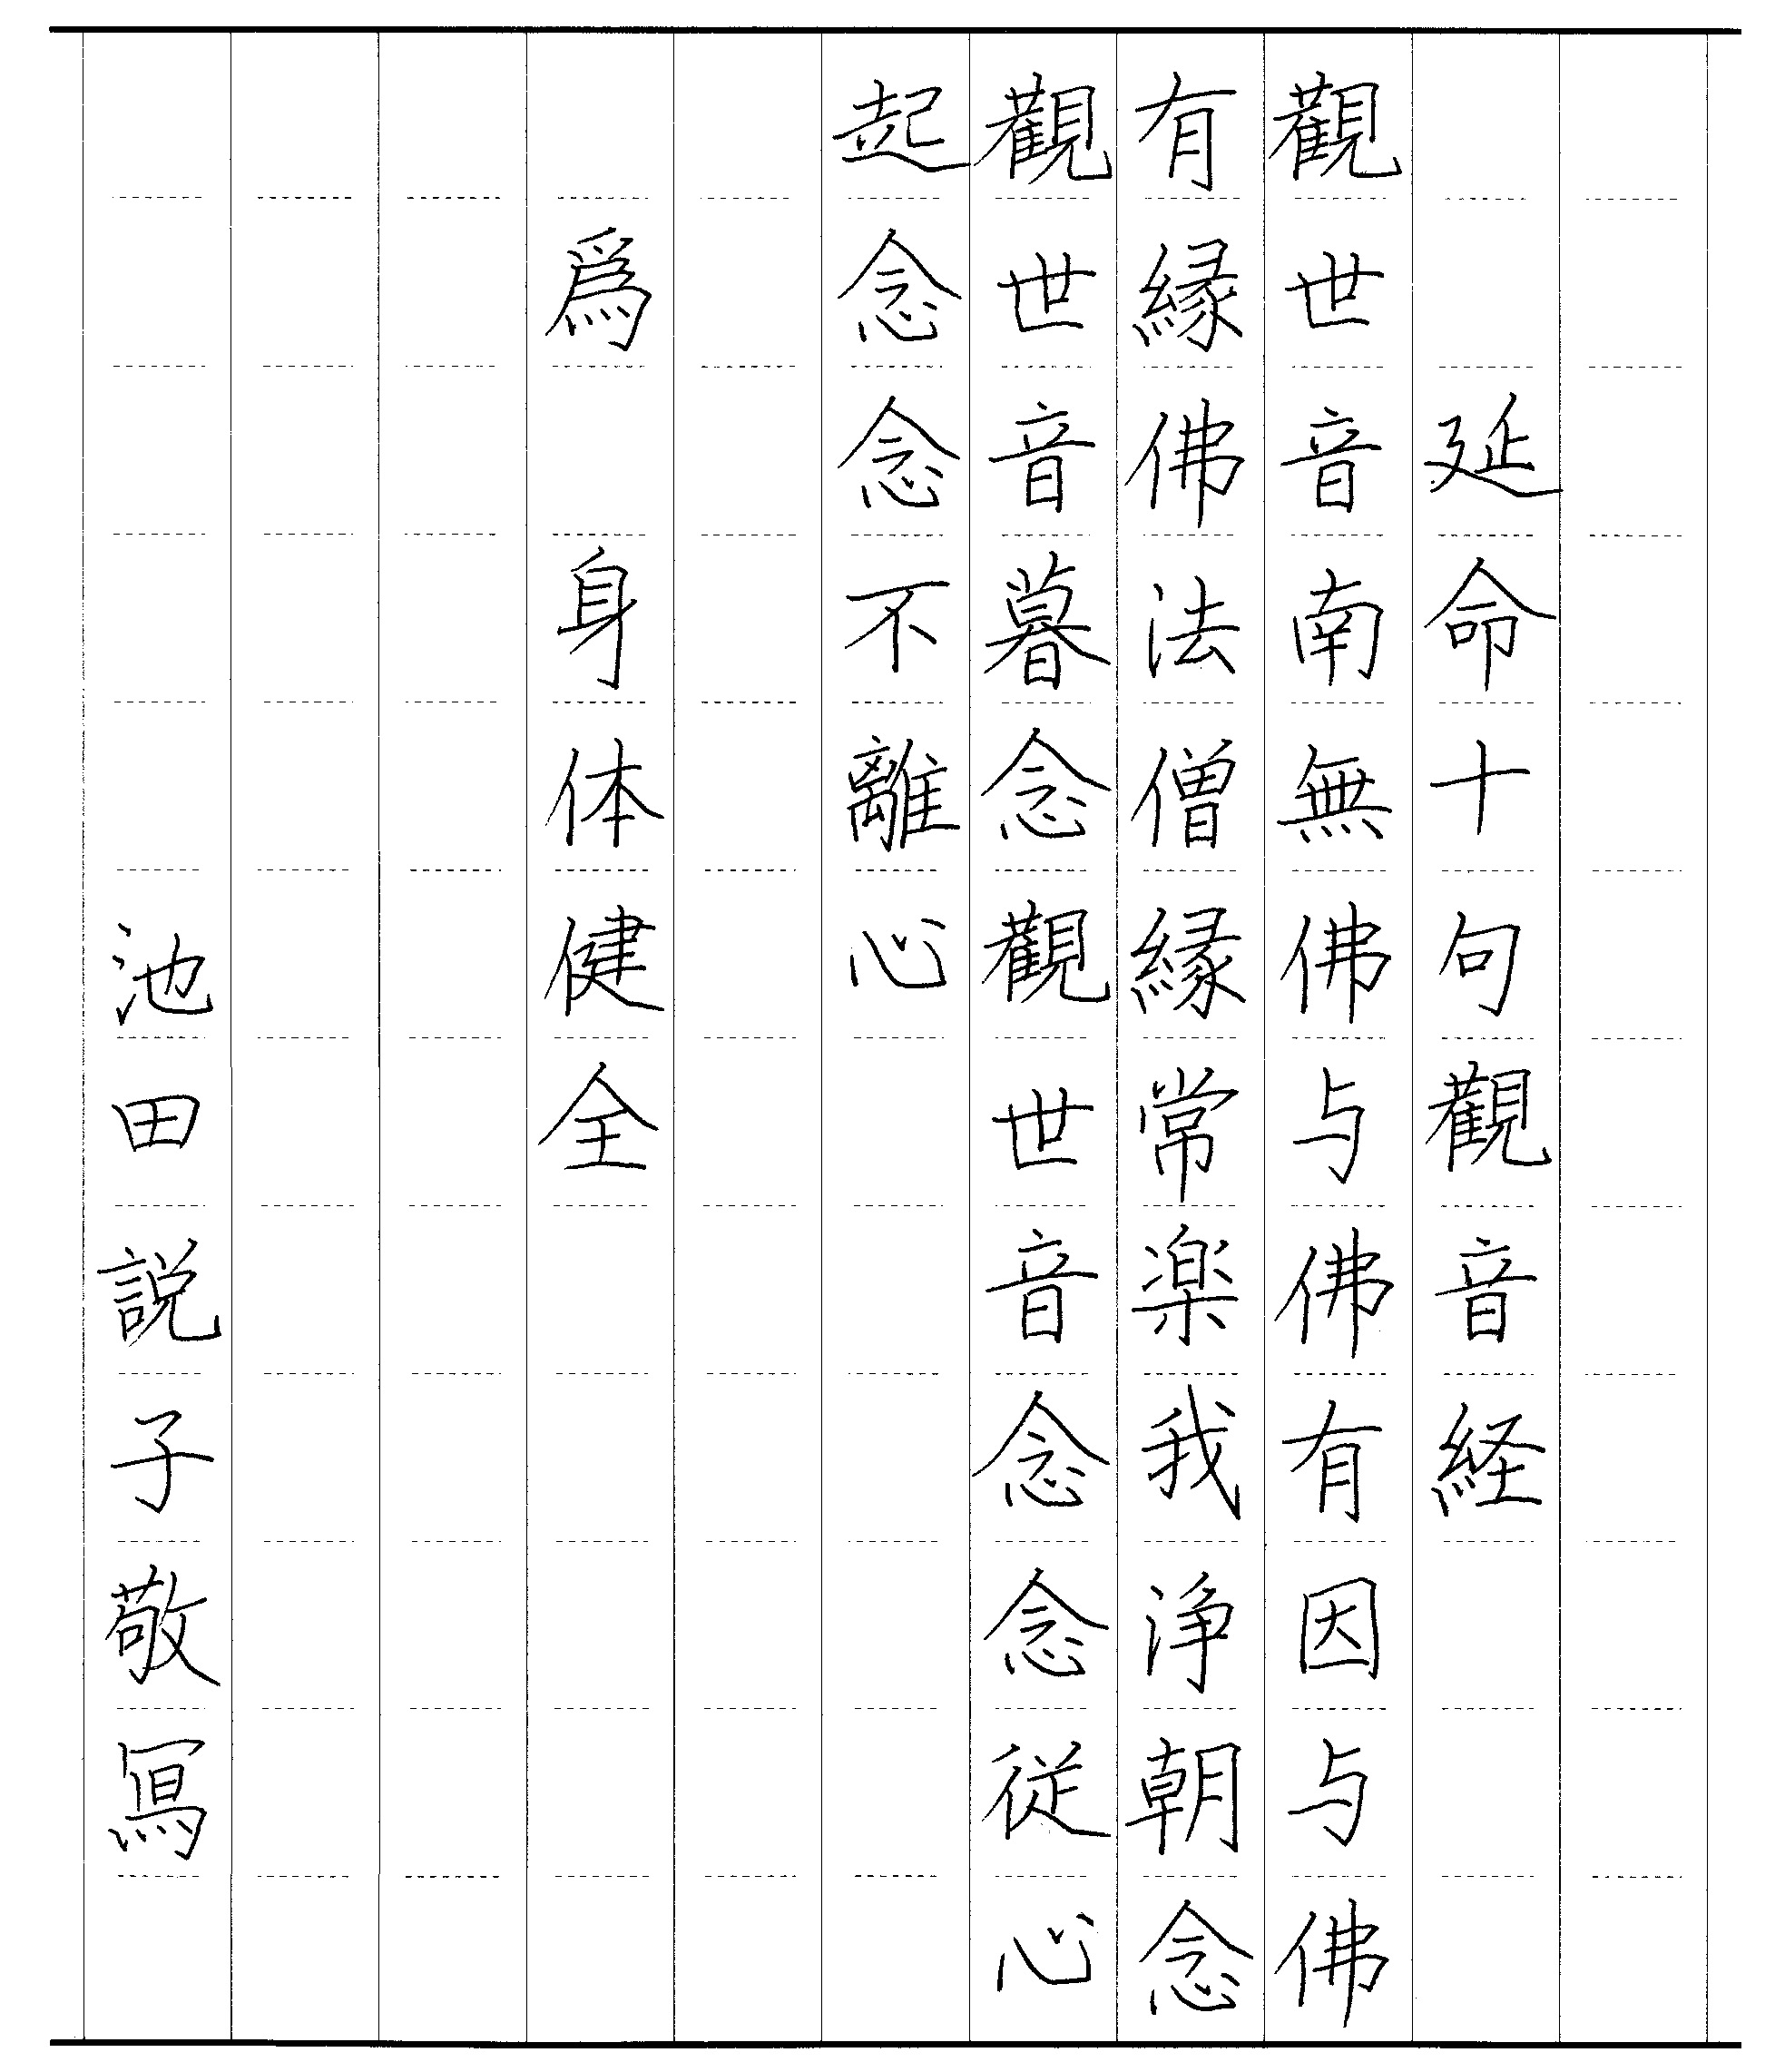 延命十句觀音経
觀世音南無佛与佛有因与佛
有縁佛法僧縁常楽我浄朝念
觀世音暮念觀世音念念従心
起念念不離心
為 身体健全
池田説子敬寫